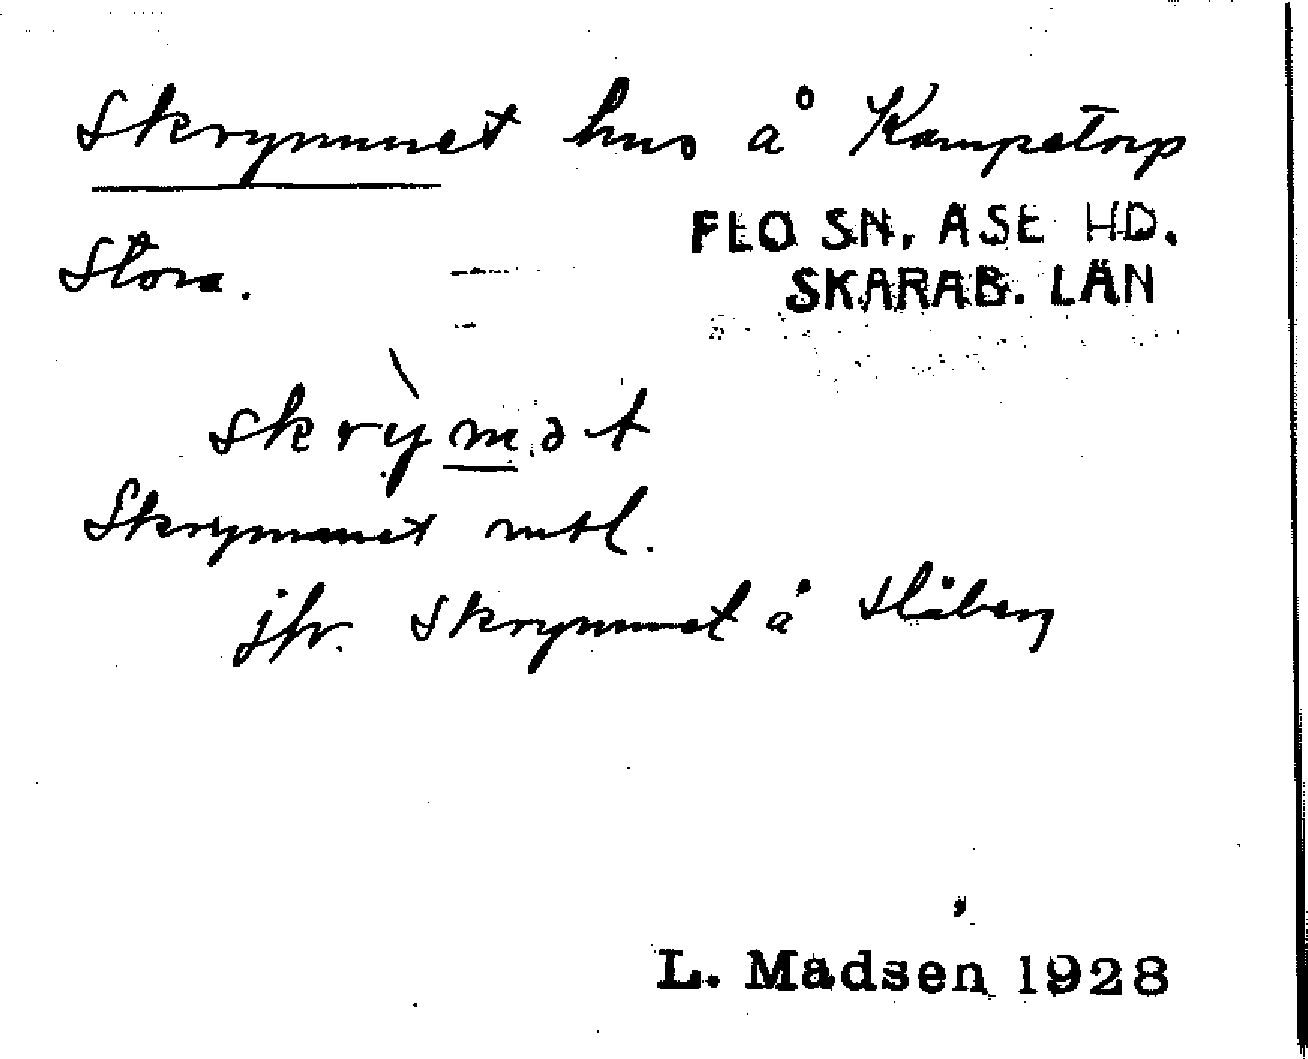 Skrymmet hus å Kampetorp
Stora.
FLO SN. ÅSE HD.
SKARAB. LÄN
skrỳmət
Skrymmet mtl.
jfr. Skrymmet å Håberg
L. Madsen 1928